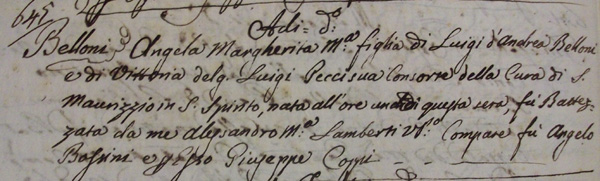 645
Adi = do:
Belloni Angela Margherita Ma. figlia di Luigi d'Andrea Belloni
e di Vittoria del q. Luigi Pecci sua Consorte della Cura di S.
Maurizio in S. Spirito, nata all'ore di questa sera, fù Battez-
zata da me Alessandro Ma. Lamberti Compare fù Angelo
Giuseppe